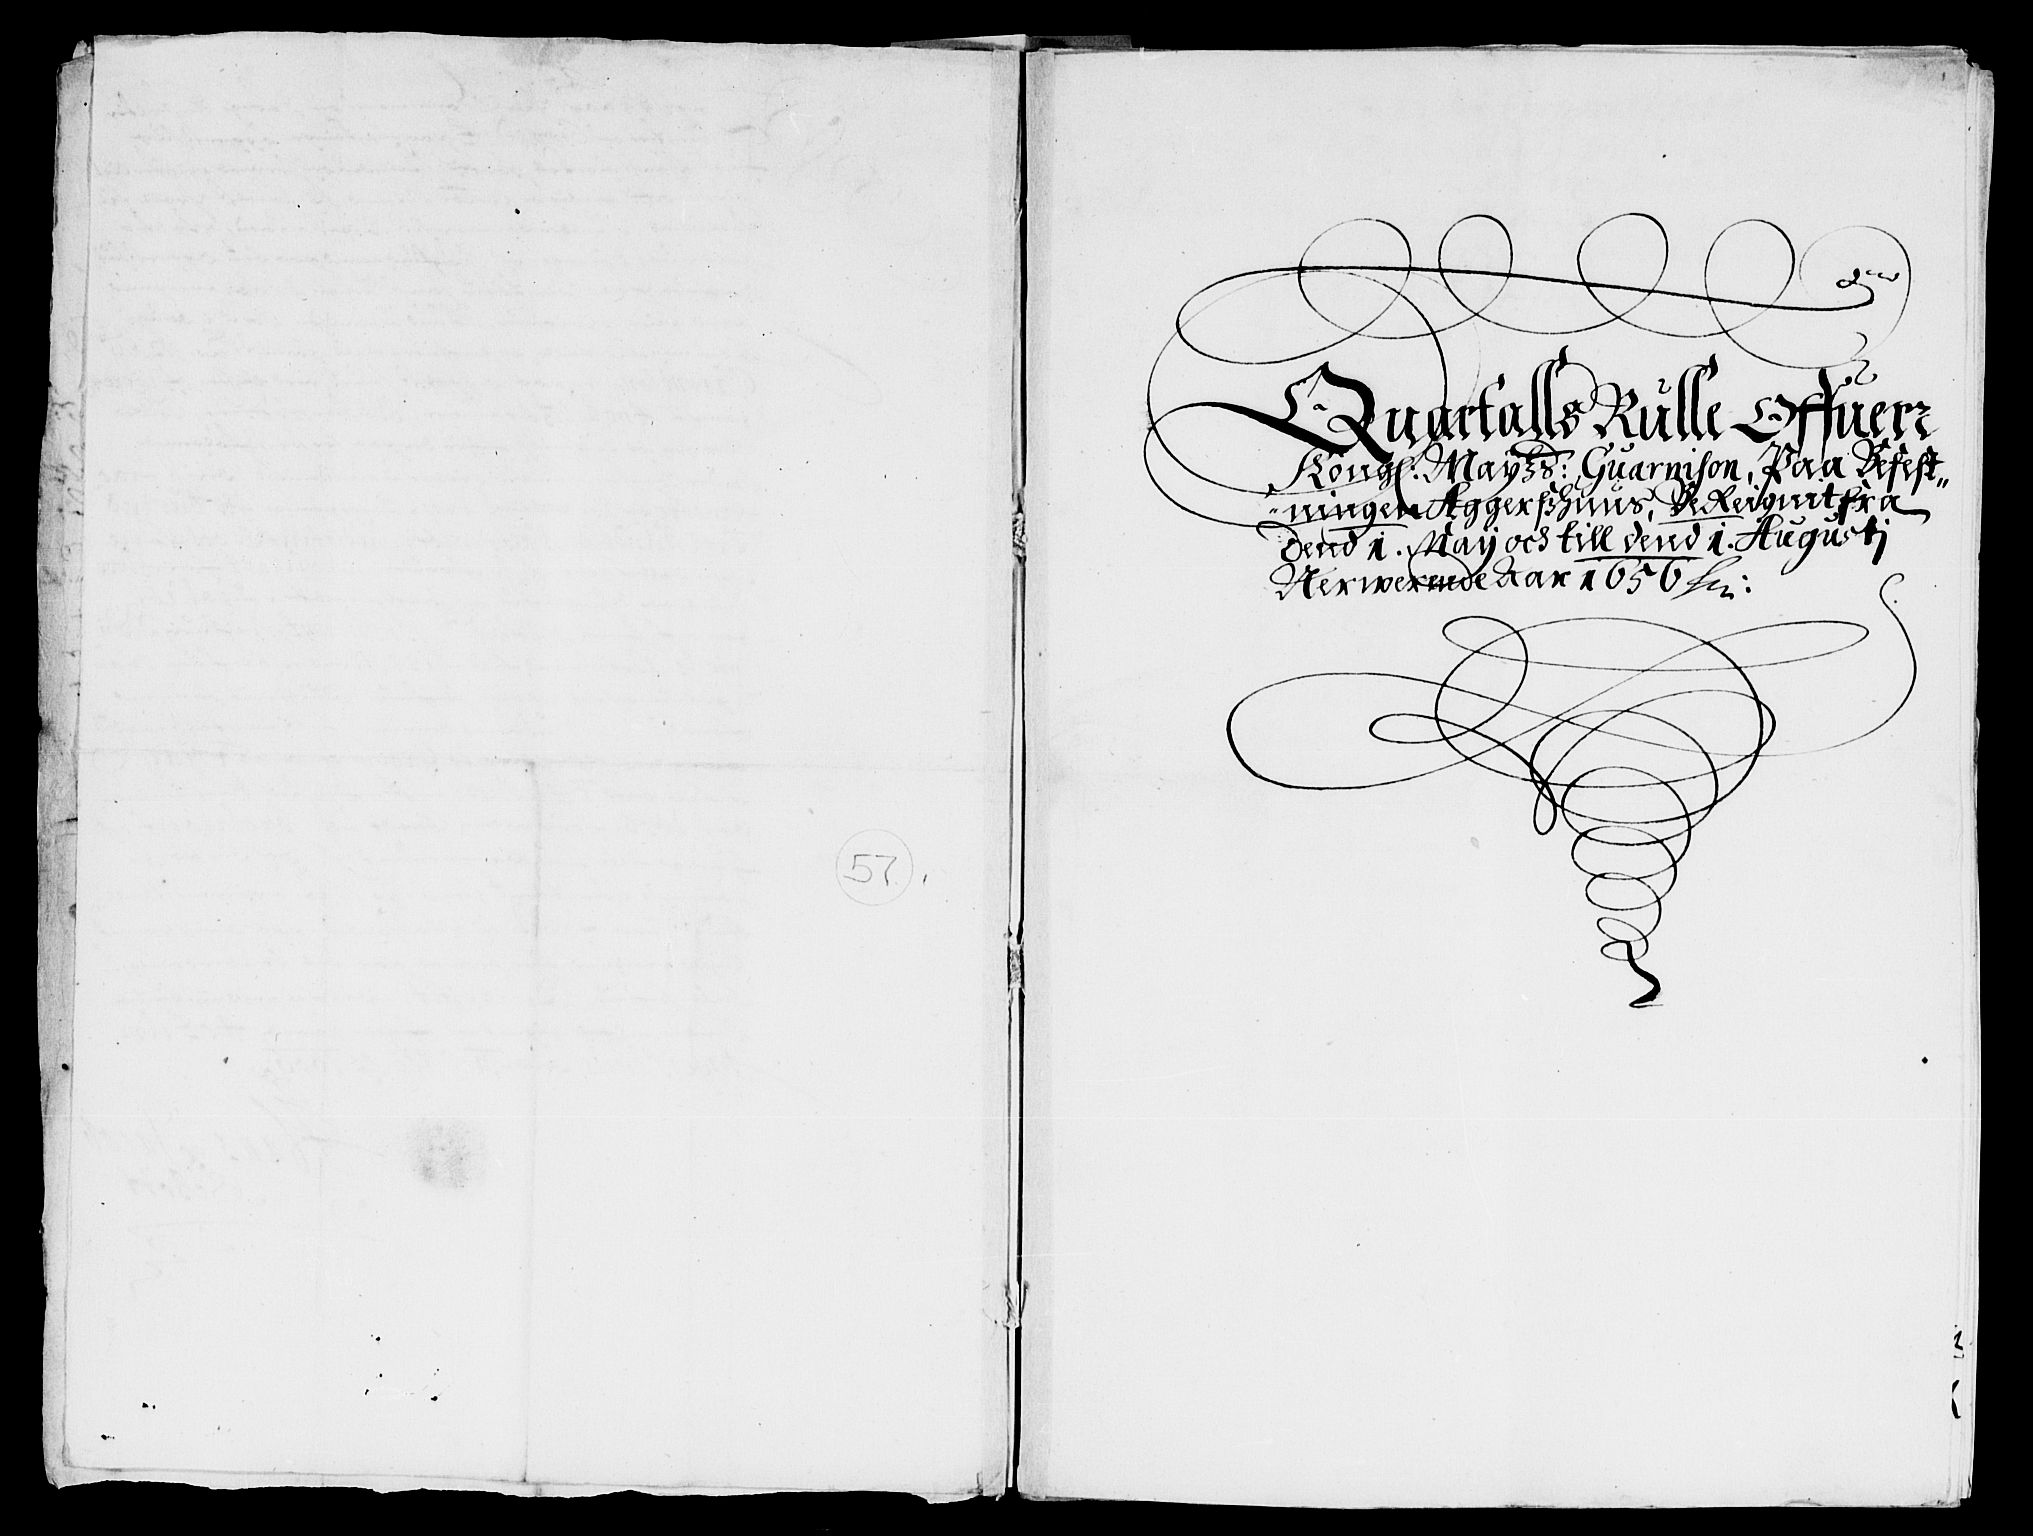 57.
Quartalls Rulle Offuer
Kongl: Maytz: Guarnison, Paa Befest-
ningen Aggerszhuus, BeReignit fra
Dend 1. May och till dend 1. Augustj
Nerwerende Aar 1656